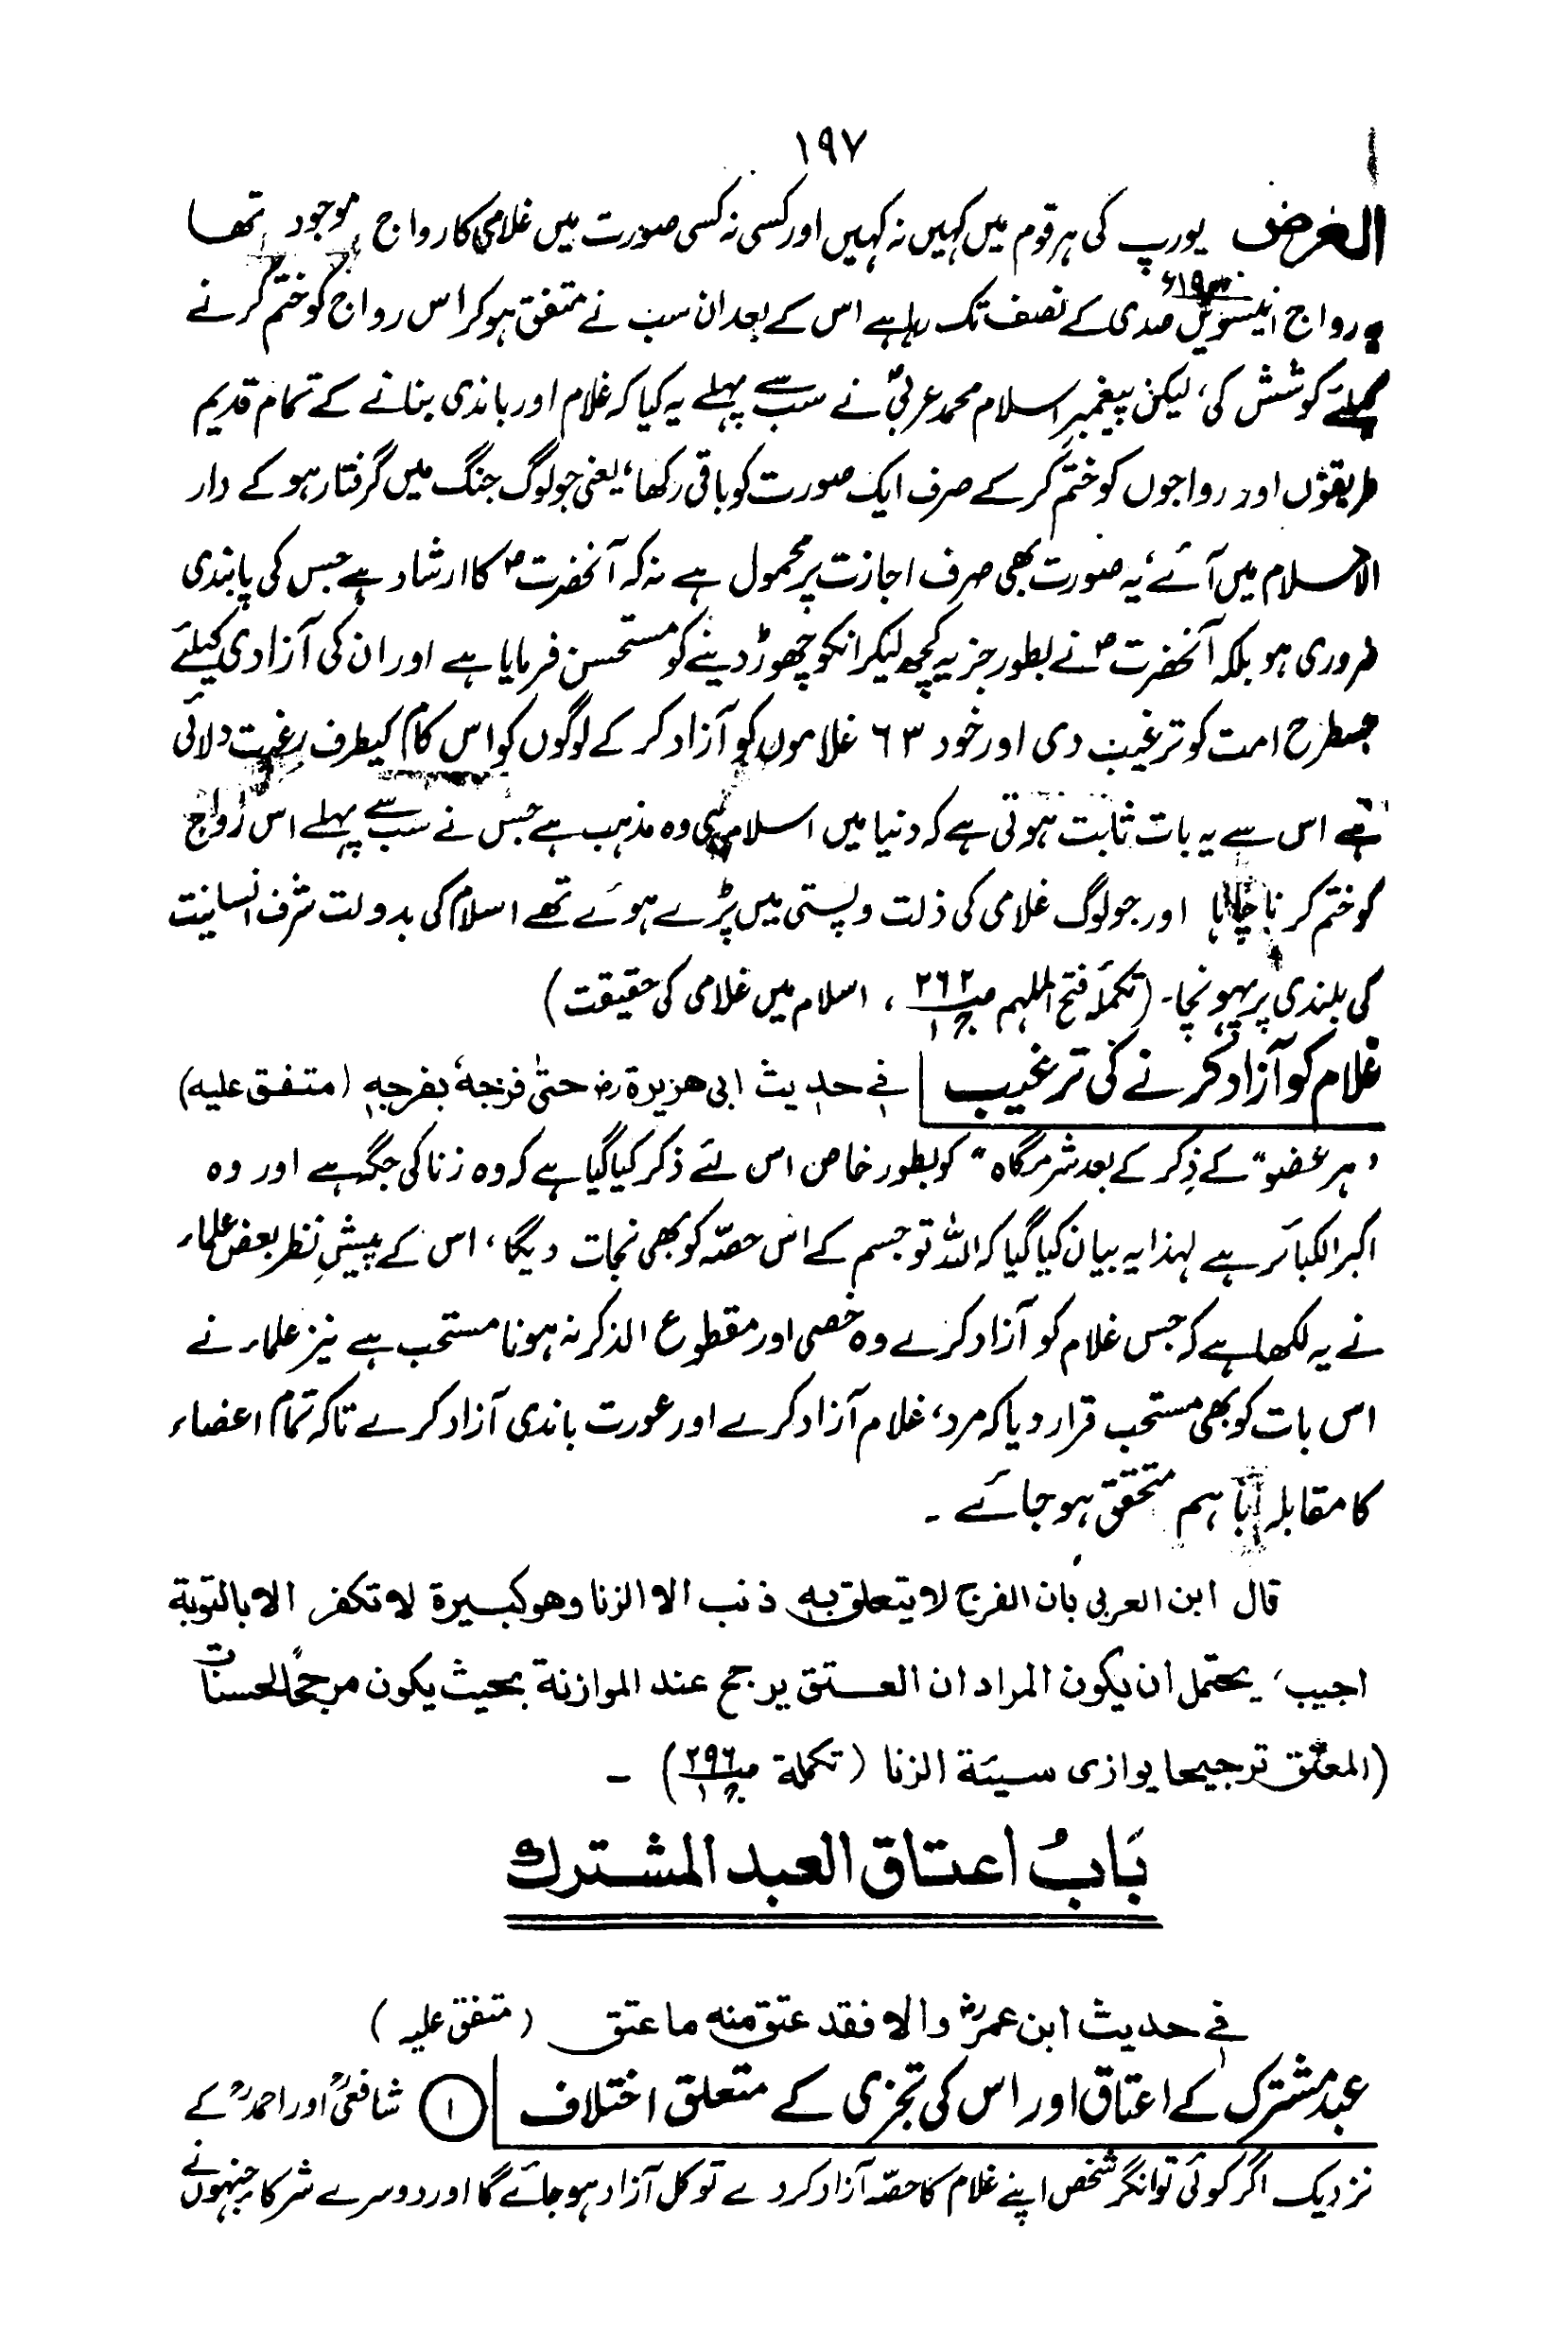 ۱۹۷
الغرض یورپ کی ہر قوم میں کہیں نہ کہیں اور کسی نہ کسی صورت میں غلامی کا رواج موجود تھا
یہ رواج انیسویں صدی کے نصف تک رہا ہے اس کے بعد ان سب نے متفق ہو کر اس رواج کو ختم کرنے
کیلئے کوشش کی، لیکن پیغمبرِ اسلام محمد عربیؐ نے سب سے پہلے یہ کیا کہ غلام اور باندی بنانے کے تمام قدیم
طریقوں اور رواجوں کو ختم کر کے صرف ایک صورت کو باقی رکھا، یعنی جو لوگ جنگ میں گرفتار ہو کے دار
الاسلام میں آئے، یہ صورت بھی صرف اجازت پر محمول ہے نہ کہ آنحضرتؐ کا ارشاد ہے جس کی پابندی
ضروری ہو بلکہ آنحضرتؐ نے بطور جزیہ کچھ لیکر انکو چھوڑ دینے کو مستحسن فرمایا ہے اور ان کی آزادی کیلئے
جسطرح امت کو ترغیب دی اور خود ۶۳ غلاموں کو آزاد کر کے لوگوں کو اس کام کیطرف رغبت دلائی
ہے اس سے یہ بات ثابت ہوتی ہے کہ دنیا میں اسلام ہی وہ مذہب ہے جس نے سب سے پہلے اس رواج
کو ختم کرنا چاہا اور جو لوگ غلامی کی ذلت و پستی میں پڑے ہوئے تھے اسلام کی بدولت شرف انسانیت
کی بلندی پر پہونچا۔ (تکملۂ فتح الملہم ص۲۶۲ ج۱، اسلام میں غلامی کی حقیقت)
غلام کو آزاد کرنے کی ترغیب | فی حدیث ابی هریرة رض حتیٰ فرجهٗ بفرجهٖ (متفق علیه)
"ہر عضو" کے ذِکر کے بعد شرمگاہ" کو بطور خاص اس لئے ذکر کیا گیا ہے کہ وہ زنا کی جگہ ہے اور وہ
اکبر الکبائر ہے لہذا یہ بیان کیا گیا کہ اللہ تو جسم کے اس حصّہ کو بھی نجات دیگا، اس کے پیشِ نظر بعض علماء
نے یہ لکھا ہے کہ جس غلام کو آزاد کرے وہ خصی اور مقطوع الذکر نہ ہونا مستحب ہے نیز علماء نے
اس بات کو بھی مستحب قرار دیا کہ مرد، غلام آزاد کرے اور عورت باندی آزاد کرے تاکہ تمام اعضاء
کا مقابلہ باہم متحقق ہو جائے ۔
قال ابن العربی بان الفرج لا یتعلق به ذنب الا الزنا وهو کبیرة لا تکفر الا بالتوبة
اجیب، یحتمل ان یکون المراد ان العتق یرجح عند الموازنة بحیث یکون مرجحًا لحسنات
(المعتق ترجیحا یوازی سیئة الزنا (تکملة ص۲۹۶ ج۱) ۔
بَابُ اعتاق العبد المشترك
فی حدیث ابن عمرؓ والا فقد عتق منه ما عتق (متفق علیہ)
عبد مشترک کے اعتاق اور اس کی تجزی کے متعلق اختلاف | ۱ شافعیؒ اور احمدؒ کے
نزدیک اگر کوئی توانگر شخص اپنے غلام کا حصّہ آزاد کر دے تو کل آزاد ہو جائے گا اور دوسرے شرکا جنہوں نے